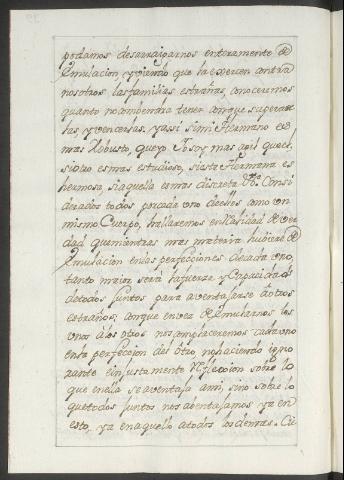 podamos desarraigarnos enteramente de
Emulacion, y viendo que la exercen contra
nosotros las familias estrañas, conoceremos
quanto nos combendra tener con que superar
las, y vencerlas, y assi si mi Hermano es
mas Robusto, que yo, Yo soy mas agil que el,
si otro es mas estudioso, si esta Hermana es
hermosa, si aquella es mas discreta &a. Consi
derados todos por cada uno de ellos como un
mismo Cuerpo, hallaremos en Realidad de ver
dad, que mientras mas materia hubiere de
Emulacion en las perfecciones de cada uno,
tanto maior será la fuerza, y Capacidad
de todos juntos para aventajarse à otros
estraños; con que en vez de Emularnos los
unos à los otros nos complaceremos cada uno
en la perfeccion del otro, no haciendo igno
rante è injustamente Reflecion sobre lo
que en ella se aventaja à mi, sino sobre lo
que todos juntos nos abentajamos ya en
esto, ya en aquello a todos los demas. Cie